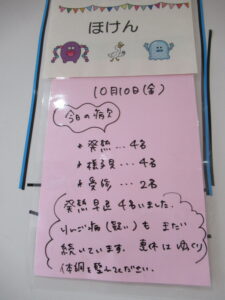 ほけん
10月10日(金)
今日の病欠
* 発熱・・・4名
* 様子見・・・4名
* 受診・・・2名
発熱早退 4名いました。
りんご病(疑い)も まだ
続いています。連休はゆっくり
体調を整えてください。